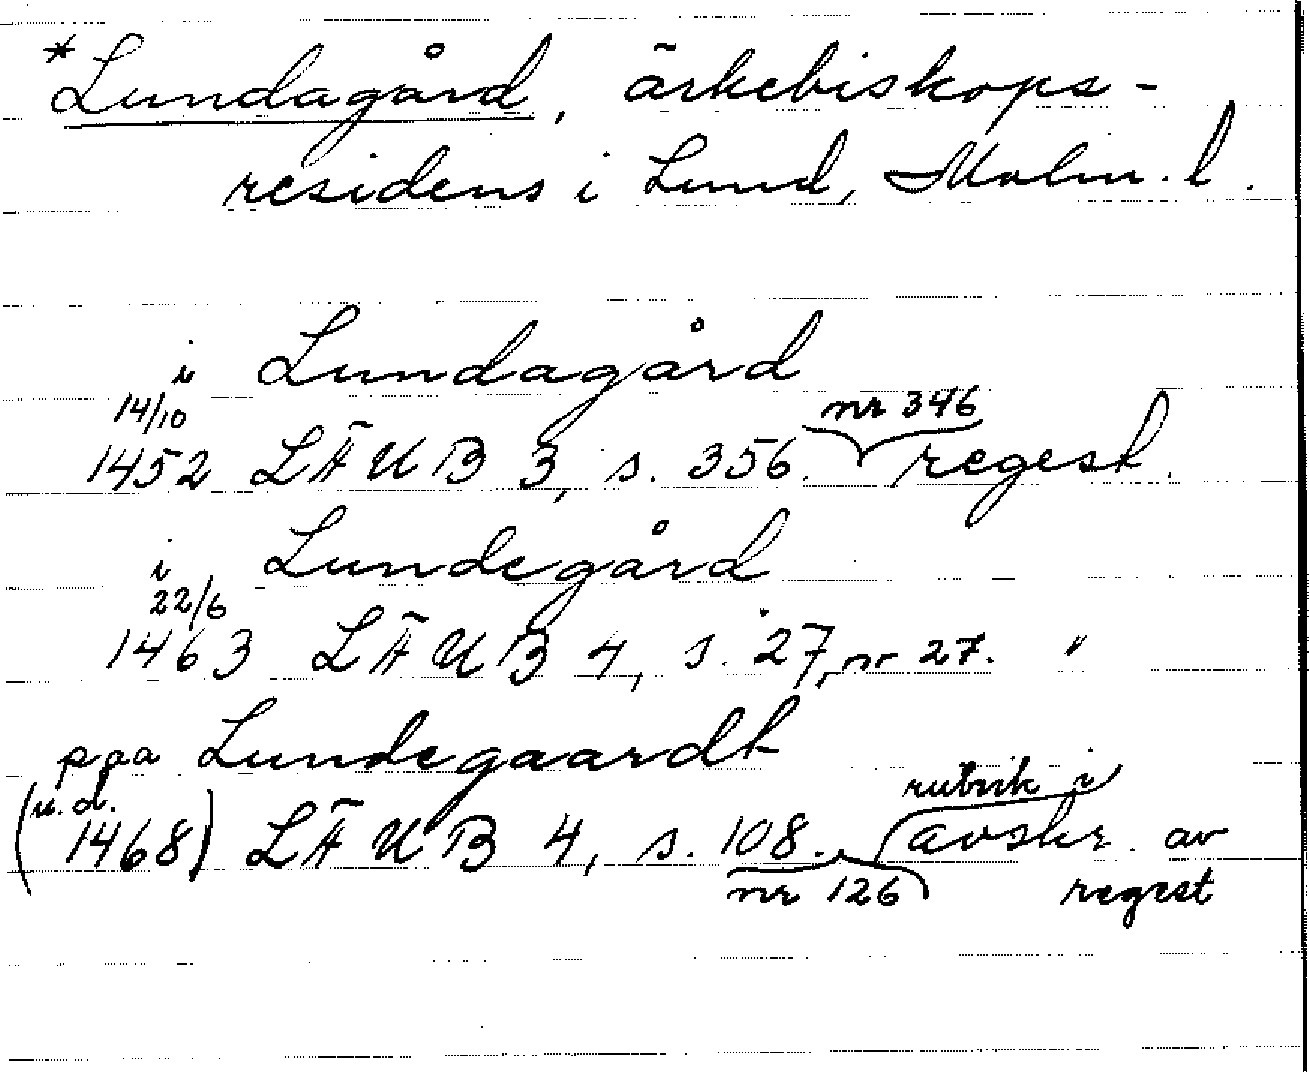 *Lundagård, ärkebiskops-
residens i Lund, Malm. l.
i Lundagård
14/10
nr 346
1452 LÄUB 3, s. 356. regest.
i Lundegård
22/6
1463 LÄUB 4, s. 27, nr 27. "
paa Lundegaardh
(u. d. rubrik i
1468) LÄUB 4, s. 108. avskr. av
nr 126 regest